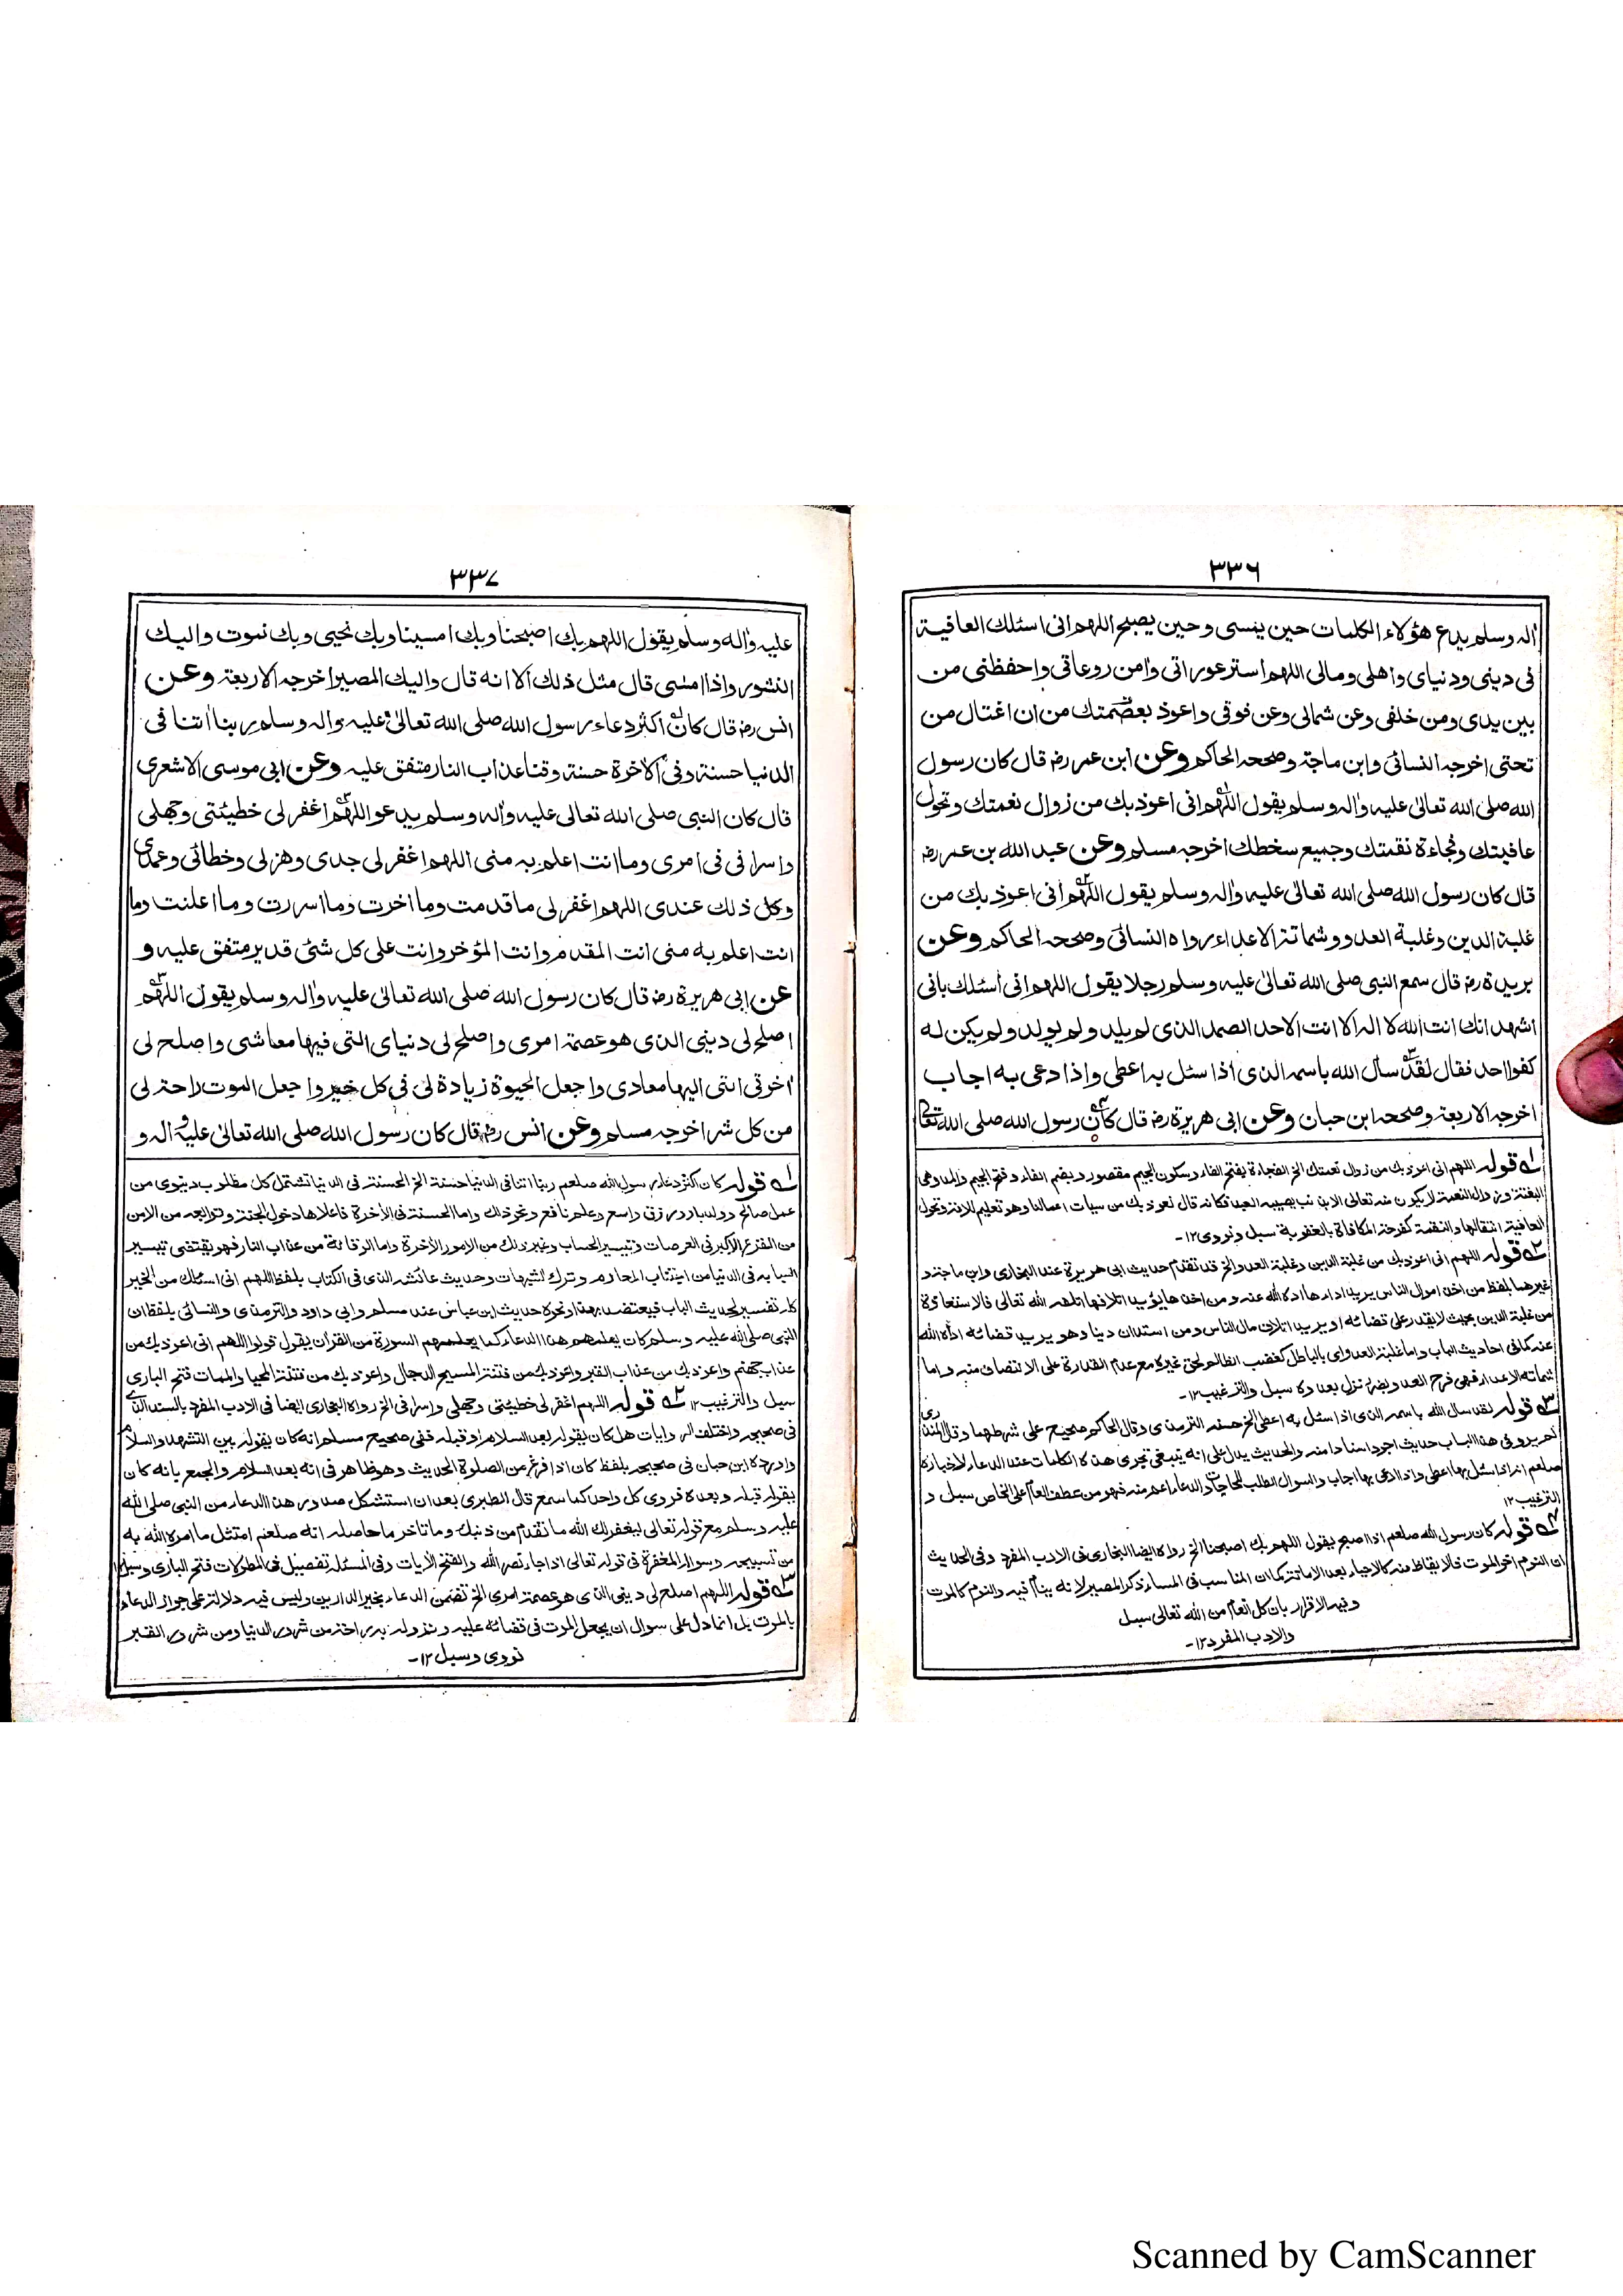 ٣٣٦
اله وسلم يدع هؤلاء الكلمات حين يمسى وحين يصبح اللهم انى اسئلك العافية
فى دينى ودنياى واهلى ومالى اللهم استر عوراتى وامن روعاتى واحفظنى من
بين يدى ومن خلفى وعن شمالى وعن فوقى واعوذ بعظمتك من ان اغتال من
تحتى اخرجه النسائى وابن ماجة وصححه الحاكم وعن ابن عمر رض قال كان رسول
الله صلى الله تعالى عليه واله وسلم يقول اللهم انى اعوذ بك من زوال نعمتك وتحول
عافيتك وفجاءة نقمتك وجميع سخطك اخرجه مسلم وعن عبد الله بن عمر رض
قال كان رسول الله صلى الله تعالى عليه واله وسلم يقول اللهم انى اعوذ بك من
غلبة الدين وغلبة العدو وشماتة الاعداء رواه النسائى وصححه الحاكم وعن
بريدة رض قال سمع النبى صلى الله تعالى عليه وسلم رجلا يقول اللهم انى اسئلك بانى
اشهد انك انت الله لا اله الا انت الاحد الصمد الذى لم يلد ولم يولد ولم يكن له
كفوا احد فقال لقد سأل الله باسمه الذى اذا سئل به اعطى واذا دعى به اجاب
اخرجه الاربعة وصححه ابن حبان وعن ابى هريرة رض قال كان رسول الله صلى الله تعالى
قوله اللهم انى اعوذ بك من زوال نعمتك الخ الفجاءة بفتح الفاء وسكون الجيم مقصور وبضم الفاء وفتح الجيم والمد وهى
البغتة وزوال النعمة لا يكون منه تعالى الا بذنب يصيبه العبد فكانه قال نعوذ بك من سيات اعمالنا وهو تعليم للامة وتحول
العافية انتقالها والنقمة كفرحة المكافاة بالعقوبة سبل ونووى ١٢-
قوله اللهم انى اعوذ بك من غلبة الدين وغلبة العدو الخ قد تقدم حديث ابى هريرة عند البخارى وابن ماجة و
غيرهما بلفظ من اخذ اموال الناس يريد اداءها اده الله عنه ومن اخذها يريد اتلافها اتلفه الله تعالى فالاستعاذة
من غلبة الدين بحيث لا يقدر على قضائه او يريد اتلاف مال الناس ومن استدان دينا وهو يريد قضائه اداه الله
عنه كما فى احاديث الباب واما غلبة العدو اى بالباطل كغضب الظالم لحق غيره مع عدم القدرة على الانتصاف منه واما
شماتة الاعداء فهى فرح العدو بضر تنزل بعدوه سبل والترغيب ١٢-
قوله لقد سال الله باسمه الذى اذا سئل به اعطى الخ حسنه الترمذى وقال الحاكم صحيح على شرطهما وقال المنذرى
لم يرو فى هذا الباب حديث اجود اسنادا منه والحديث يدل على انه ينبغى تحرى هذه الكلمات عند الدعاء لاخباره
صلعم انه اذا سئل بها اعطى واذا دعى بها اجاب والسوال الطلب للحاجات والدعاء اعم منه فهو من عطف العام على الخاص سبل و
الترغيب ١٢
قوله كان رسول الله صلعم اذا اصبح يقول اللهم بك اصبحنا الخ رواه ايضا البخارى فى الادب المفرد وفى الحديث
ان النوم اخو الموت فالايقاظ منه كالاحياء بعد الاماتة كما ان المناسب فى المساء ذكر المصير لانه ينام فيه والنوم كالموت
وفيه الاقرار بان كل انعام من الله تعالى سبل
والادب المفرد ١٢-
٣٣٧
عليه واله وسلم يقول اللهم بك اصبحنا وبك امسينا وبك نحيى وبك نموت واليك
النشور واذا امسى قال مثل ذلك الا انه قال واليك المصير اخرجه الاربعة وعن
انس رض قال كان اكثر دعاء رسول الله صلى الله تعالى عليه واله وسلم ربنا اتنا فى
الدنيا حسنة وفى الاخرة حسنة وقنا عذاب النار متفق عليه وعن ابى موسى الاشعرى
قال كان النبى صلى الله تعالى عليه واله وسلم يدعو اللهم اغفر لى خطيئتى وجهلى
واسرافى فى امرى وما انت اعلم به منى اللهم اغفر لى جدى وهزلى وخطائى وعمدى
وكل ذلك عندى اللهم اغفر لى ما قدمت وما اخرت وما اسررت وما اعلنت وما
انت اعلم به منى انت المقدم وانت المؤخر وانت على كل شئى قدير متفق عليه و
عن ابى هريرة رض قال كان رسول الله صلى الله تعالى عليه واله وسلم يقول اللهم
اصلح لى دينى الذى هو عصمة امرى واصلح لى دنياى التى فيها معاشى واصلح لى
اخرتى التى اليها معادى واجعل الحيوة زيادة لى فى كل خير واجعل الموت راحة لى
من كل شر اخرجه مسلم وعن انس رض قال كان رسول الله صلى الله تعالى عليه واله و
قوله كان اكثر دعاء رسول الله صلعم ربنا اتنا فى الدنيا حسنة الخ الحسنة فى الدنيا تشتمل كل مطلوب دنيوى من
عمل صالح وولد بار ورزق واسع وعلم نافع ونحو ذلك واما الحسنة فى الاخرة فاعلاها دخول الجنة وتوابعه من الامن
من الفزع الاكبر فى العرصات وتيسير الحساب وغير ذلك من الامور الاخرة واما الوقائة من عذاب النار فهو يقتضى تيسير
اسبابه فى الدنيا من اجتناب المحارم وترك الشبهات وحديث عائشة الذى فى الكتاب بلفظ اللهم انى اسئلك من الخير
كله تفسير لحديث الباب فيعتضد بهذا ونحوه حديث ابن عباس عند مسلم وابى داود والترمذى والنسائى بلفظ ان
النبى صلى الله عليه وسلم كان يعلمهم هذا الدعاء كما يعلمهم السورة من القران يقول قولوا اللهم انى اعوذ بك من
عذاب جهنم واعوذ بك من عذاب القبر واعوذ بك من فتنة المسيح الدجال واعوذ بك من فتنة المحيا والممات فتح البارى
سبل والترغيب ١٢ قوله اللهم اغفر لى خطيئتى وجهلى واسرافى الخ رواه البخارى ايضا فى الادب المفرد بالسند الذى
فى صحيحه واختلف الروايات هل كان يقوله بعد السلام او قبله ففى صحيح مسلم انه كان يقوله بين التشهد والسلام
واورده ابن حبان فى صحيحه بلفظ كان اذا فرغ من الصلوة الحديث وهو ظاهر فى انه بعد السلام والجمع بانه كان
يقوله قبله وبعده فروى كل واحد كما سمع قال الطبرى بعد ان استشكل صدور هذا الدعاء من النبى صلى الله
عليه وسلم مع قوله تعالى ليغفر لك الله ما تقدم من ذنبك وما تاخر ما حاصله انه صلعم امتثل ما امره الله به
من تسبيحه وسوال المغفرة فى قوله تعالى اذا جاء نصر الله والفتح الايات وفى المسئلة تفصيل فى المطولات فتح البارى وسبل ١٢
قوله اللهم اصلح لى دينى الذى هو عصمة امرى الخ تضمن الدعاء بخير الدارين وليس فيه دلالة على جواز الدعاء
بالموت بل انما دل على سوال ان يجعل الموت فى قضائه عليه ونزوله به راحة من شرور الدنيا ومن شرور القبر
نووى وسبل ١٢-
Scanned by CamScanner